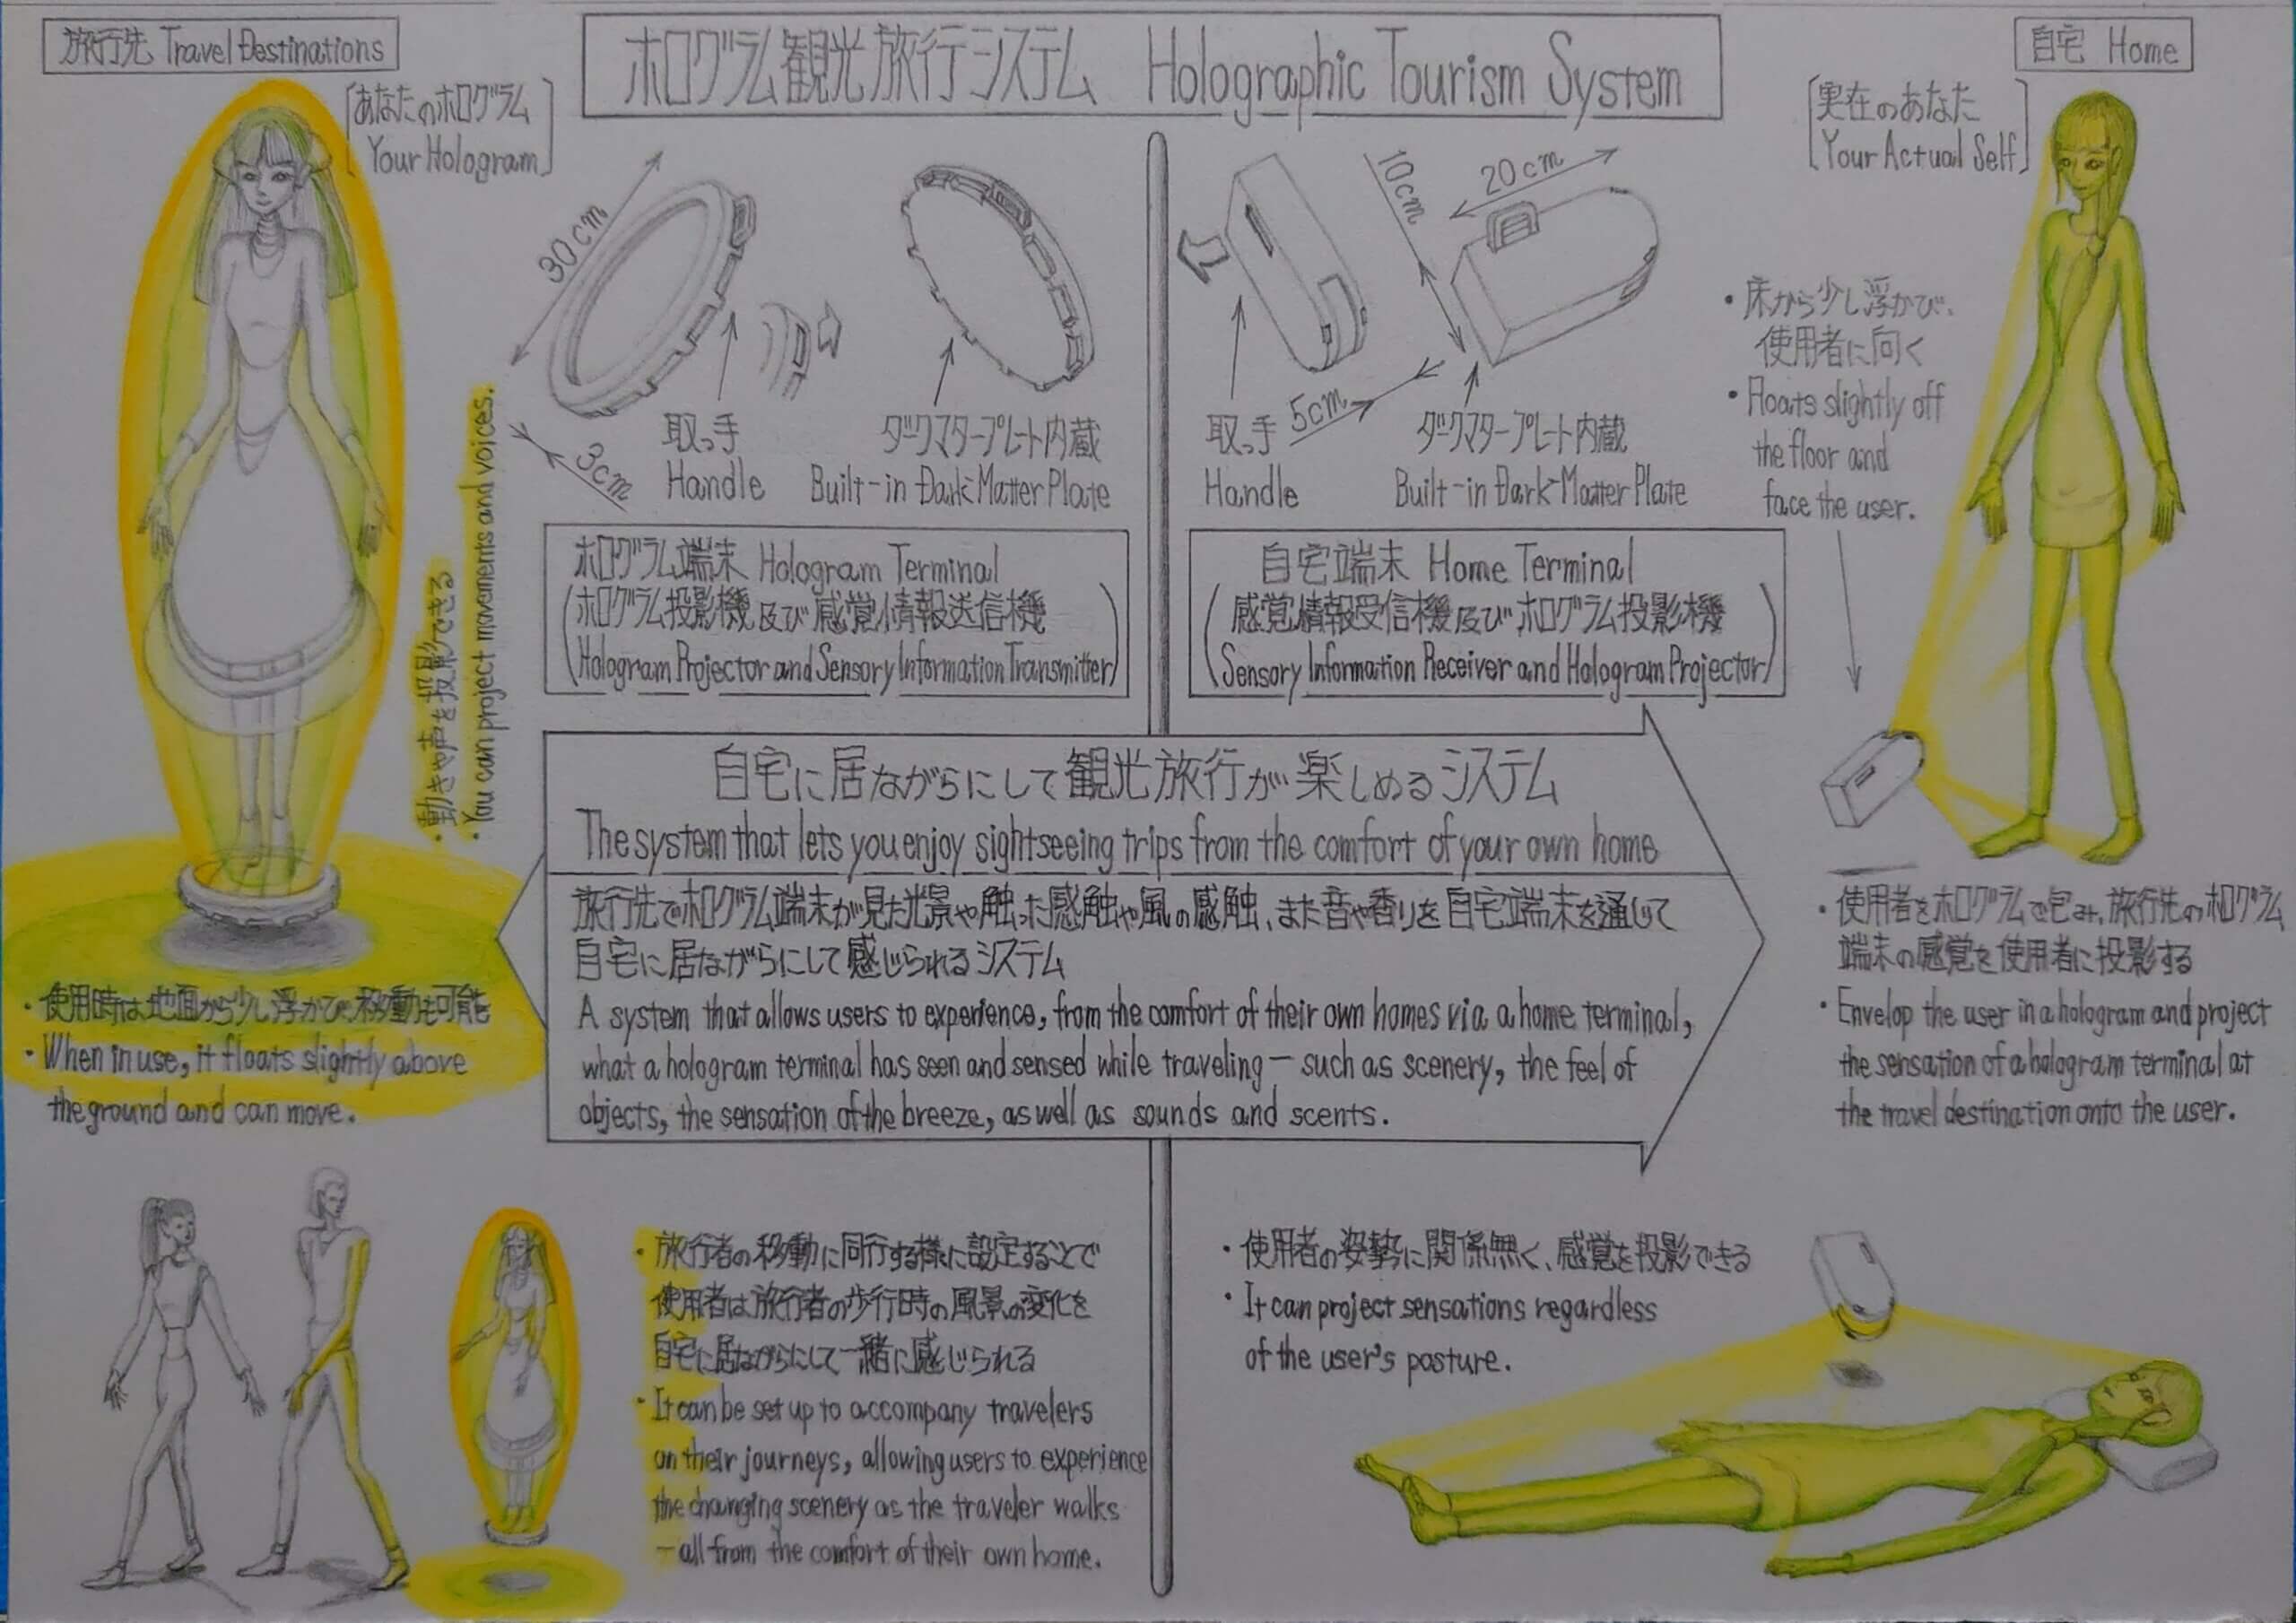 旅行先 Travel Destinations
ホログラム観光旅行システム Holographic Tourism System
自宅 Home
あなたのホログラム
Your Hologram
実在のあなた
Your Actual Self
30cm
3cm
取っ手
Handle
ダークマタープレート内蔵
Built-in Dark-Matter Plate
10cm
20cm
5cm
取っ手
Handle
ダークマタープレート内蔵
Built-in Dark-Matter Plate
・床から少し浮かび、
使用者に向く
・Floats slightly off
the floor and
face the user.
・動きや声を投影できる
・You can project movements and voices.
ホログラム端末 Hologram Terminal
(ホログラム投影機及び感覚情報送信機
Hologram Projector and Sensory Information Transmitter)
自宅端末 Home Terminal
(感覚情報受信機及びホログラム投影機
Sensory Information Receiver and Hologram Projector)
自宅に居ながらにして観光旅行が楽しめるシステム
The system that lets you enjoy sightseeing trips from the comfort of your own home
旅行先でホログラム端末が見た光景や触った感触や風の感触、また音や香りを自宅端末を通じて
自宅に居ながらにして感じられるシステム
A system that allows users to experience, from the comfort of their own homes via a home terminal,
what a hologram terminal has seen and sensed while traveling — such as scenery, the feel of
objects, the sensation of the breeze, as well as sounds and scents.
・使用時は地面から少し浮かび、移動も可能
・When in use, it floats slightly above
the ground and can move.
・使用者をホログラムで包み、旅行先のホログラム
端末の感覚を使用者に投影する
・Envelop the user in a hologram and project
the sensation of a hologram terminal at
the travel destination onto the user.
・旅行者の移動に同行する様に設定することで
使用者は旅行者の歩行時の風景の変化を
自宅に居ながらにして一緒に感じられる
・It can be set up to accompany travelers
on their journeys, allowing users to experience
the changing scenery as the traveler walks
—all from the comfort of their own home.
・使用者の姿勢に関係無く、感覚を投影できる
・It can project sensations regardless
of the user's posture.